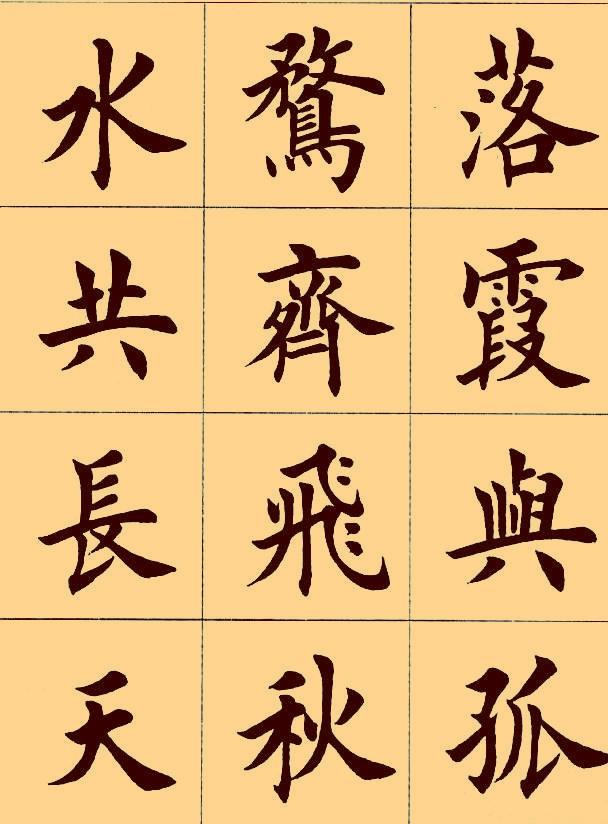 落霞與孤
鶩齊飛秋
水共長天